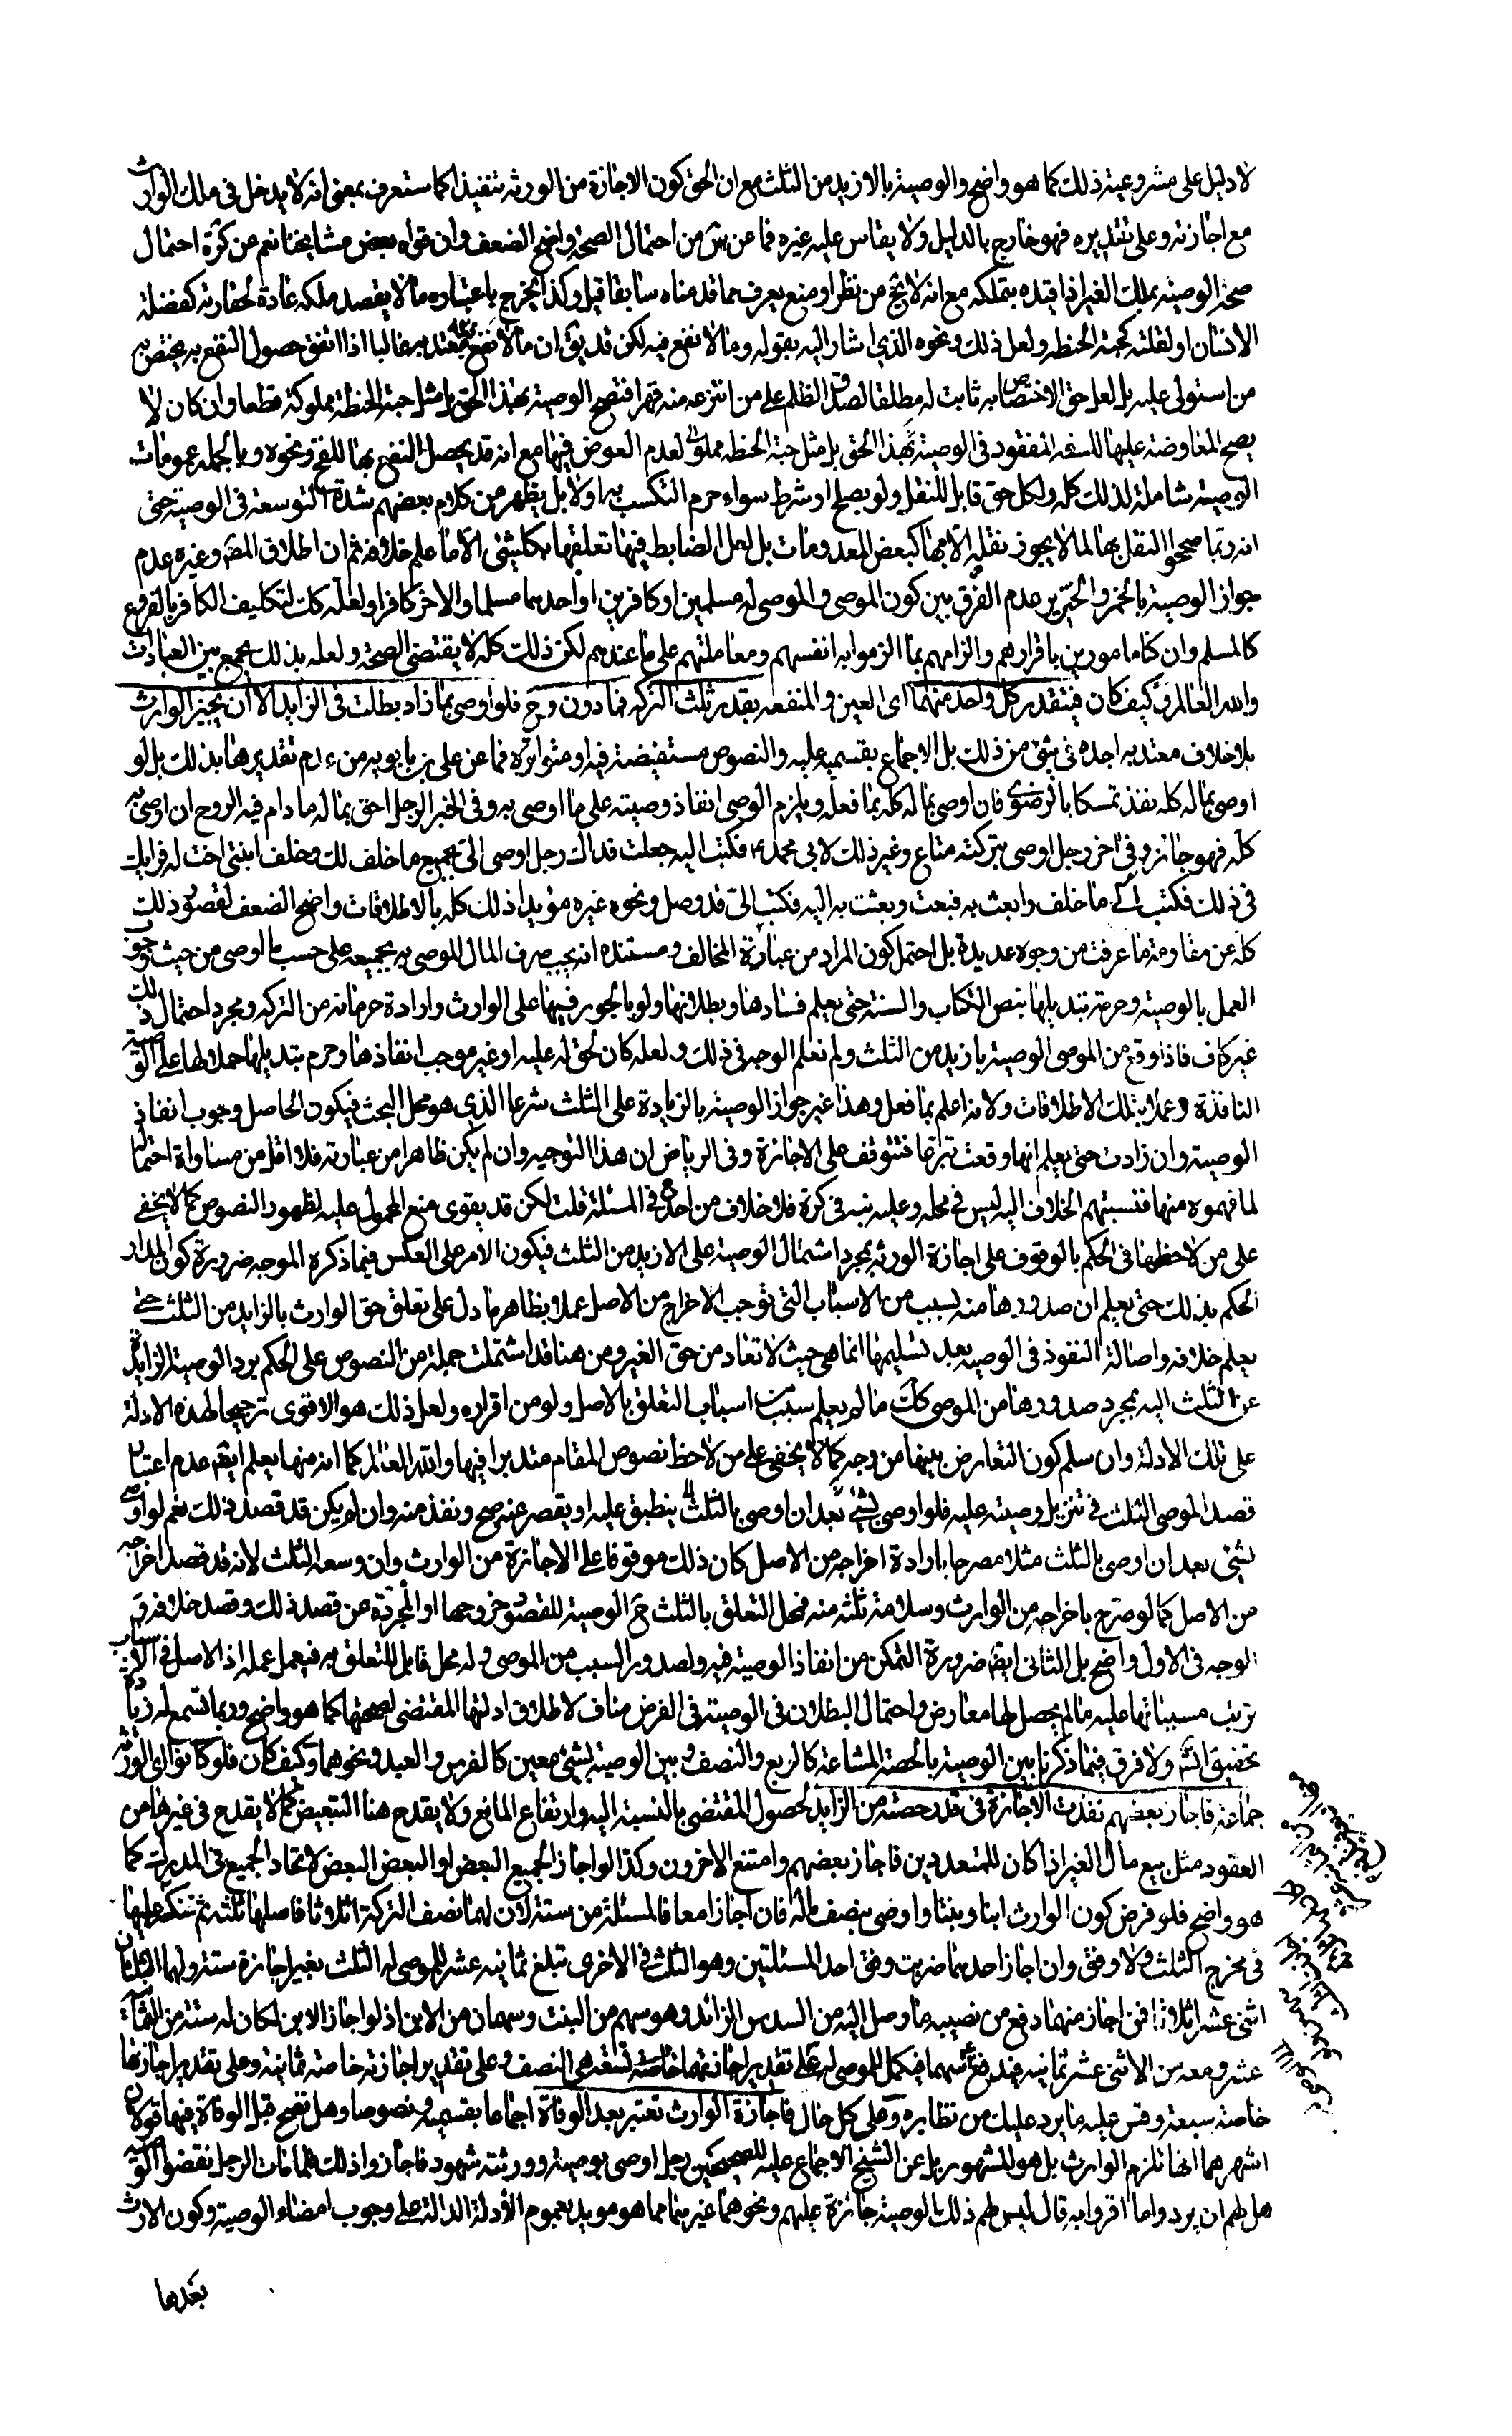 لا دليل على مشروعيته ذلك كما هو واضح والوصية بالازيد من الثلث مع ان الحق كون الاجازة من الورثه تنفيذا كما ستعرف بمعنى انه لا يدخل في ملك الوارث
مع اجازته وعلى تقديره فهو خارج بالدليل ولا يقاس عليه غيره فما عن بش من احتمال الصحة واضح الضعف وان قواه بعض مشايخنا نعم عن كرة احتمال
صحة الوصية بملك الغير اذا قيده بتملكه مع انه لا يخ من نظر او منع يعرف مما قدمناه سابقا قيل وكذا يخرج باعتباره ما لا يقصد ملكه عادة لحقارته كفضلة
الانسان او لقلته كحبة الحنطه ولعل ذلك ونحوه الذي اشار اليه بقوله وما لا نفع فيه لكن قد يق ان ما لا نفع معتد به غالبا اذا اتفق حصول النفع به يختص به
من استولى عليه بل لعل حق الاختصاص به ثابت له مطلقا لصدق الظلم على من انتزعه منه قهرا فتصح الوصية بهذا الحق بل مثل حبة الحنطة مملوكة قطعا وان كان لا
يصح المعاوضة عليها للسفه المفقود في الوصية بهذا الحق بل مثل حبة الحنطه لعدم العوض فيها مع انه قد يحصل النفع بها للفخ ونحوه وبالجمله عمومات
الوصية شاملة لذلك كله ولكل حق قابل للنقل ولو بصلح او شرط سواء حرم التكسب به او لا بل يظهر من كلام بعضهم شدة التوسعة في الوصية حتى
انه ربما صححوا النقل بها لما لا يجوز نقله الا بها كبعض المعدومات بل لعل الضابط فيها تعلقها بكل شيء الا ما علم خلافه ثم ان اطلاق المص وغيره عدم
جواز الوصية بالخمر والخنزير عدم الفرق بين كون الموصي والموصى له مسلمين او كافرين او احدهما مسلما والاخر كافرا ولعله كك لتكليف الكافر بالفروع
كالمسلم وان كنا مامورين باقرارهم والزامهم بما الزموا به انفسهم ومعاملتهم على ما عندهم لكن ذلك كله لا يقتضي الصحة ولعله بذلك يجمع بين العبارات
والله العالم وكيف كان فيتقدر كل واحد منهما اى العين والمنفعه بقدر ثلث التركه فما دون وح فلو اوصى بما زاد بطلت في الزايد الا ان يجيز الوارث
بلا خلاف معتد به اجده في شئ من ذلك بل الاجماع بقسميه عليه والنصوص مستفيضة فيه او متواترة فما عن على بن بابويه من عدم تقديرها بذلك بل لو
اوصى بماله كله نفذ تمسكا بالرضوي فان اوصى بماله كله بما فعله ويلزم الوصي انفاذ وصيته على ما اوصى به وفي الخبر الرجل احق بماله ما دام فيه الروح ان اوصى به
كله فهو جائز وفي اخر رجل اوصى بتركته متاع وغير ذلك لابي محمد ع فكتب اليه جعلت فداك رجل اوصى الى بجميع ما خلف لك وخلف ابنتي اخت له فرايك
في ذلك فكتب الي ما خلف وابعث به فبعت وبعثت به اليه فكتب الي قد وصل ونحوه غيره مؤيدا ذلك كله بالاطلاقات واضح الضعف لقصور ذلك
كله عن مقاومة ما عرفت من وجوه عديدة بل احتمل كون المراد من عبارة المخالف ومستنده انه يجب صرف المال الموصى به بجميعه على حسب ما اوصى من حيث وجوب
العمل بالوصية وحرمة تبديلها بنص الكتاب والسنة حتى يعلم فسادها وبطلانها ولو بالجور فيها على الوارث وارادة حرمانه من التركه ومجرد احتمال ذلك
غير كاف فاذا وقع من الموصي الوصية بازيد من الثلث ولم نعلم الوجه في ذلك ولعله كان لحق له عليه او غيره موجب انفاذها وحرم تبديلها حملا لها على الوصية
النافذة وعملا بتلك الاطلاقات ولانه اعلم بما فعل وهذا غير جواز الوصية بالزيادة على الثلث شرعا الذي هو محل البحث فيكون الحاصل وجوب انفاذ
الوصية وان زادت حتى يعلم انها وقعت تبرعا فتتوقف على الاجازة وفي الرياض ان هذا التوجيه وان لم يكن ظاهرا من عبارته فلا اقل من مساواة احتماله
لما فهموه منها فنسبتهم الخلاف اليه ليس في محله وعليه نبه في كرة فلا خلاف من احد في المسئلة قلت لكن قد يقوى منع المحمول عليه لظهور النصوص كما لا يخفى
على من لاحظها في الحكم بالوقوف على اجازة الورثه بمجرد اشتمال الوصية على الازيد من الثلث فيكون الامر على العكس فيما ذكره الموجه ضرورة كون المدار
الحكم بذلك حتى يعلم ان صدورها منه لسبب من الاسباب التي توجب الاخراج من الاصل عملا بظاهر ما دل على تعلق حق الوارث بالزايد من الثلث حتى
يعلم خلافه واصالة النفوذ في الوصيه بعد تسليمها انما هي حيث لا تعاد من حق الغير ومن هنا قد اشتملت جملة من النصوص على الحكم برد الوصية الزايدة
عن الثلث اليه بمجرد صدورها من الموصي كك ما لم يعلم سبب من اسباب التعلق بالاصل ولو من اقراره ولعل ذلك هو الاقوى ترجيحا لهذه الادلة
على تلك الادلة وان سلم كون التعارض بينها من وجه كما لا يخفى على من لاحظ نصوص المقام متدبرا فيها والله العالم كما انه منها يعلم ايضا عدم اعتبار
قصد الموصي الثلث في تنزيل وصيته عليه فلو اوصى بشيء بعد ان اوصى بالثلث ينطبق عليه او يقصر عنه صح ونفذ منه وان لم يكن قد قصد ذلك نعم لو اوصى
بشئ بعد ان اوصى بالثلث مثلا مصرحا بارادة اخراجه من الاصل كان ذلك موقوفا على الاجازة من الوارث وان وسعه الثلث لانه قد قصد اخراجه
من الاصل كما لو صرح باخراجه من الوارث وسلامة ثلثه منه فمحل التعلق بالثلث ح الوصية للقصور خروجها او المجردة عن قصد ذلك وقصد خلافه
الوجه في الاول واضح بل الثاني ايضا ضرورة التمكن من انفاذ الوصية فيه ولصدور السبب من الموصي وله محل قابل للتعلق به فيعمل عمله اذ الاصل في الاسباب
ترتب مسبباتها عليه ما لم يحصل لها معارض واحتمال البطلان في الوصية في الفرض مناف لاطلاق ادلتها المقتضي لصحتها كما هو واضح وربما تسمع له زيادة
تحقيق انش ولا فرق فيما ذكرنا بين الوصية بالحصة المشاعة كالربع والنصف وبين الوصية بشئ معين كالفرس والعبد ونحوهما وكيف كان فلو كانوا اى الورثة
جماعة فاجاز بعضهم نفذت الاجازة في قدر حصته من الزايد لحصول المقتضي بالنسبة اليه وارتفاع المانع ولا يقدح هنا التبعيض كما لا يقدح في غيرها من
العقود مثل بيع مال الغير اذا كان للمتعددين فاجاز بعضهم وامتنع الاخرون وكذا لو اجاز الجميع البعض او البعض البعض لاتحاد الجميع في المدرك كما
هو واضح فلو فرض كون الوارث ابنا وبنتا واوصى بنصف ماله فان اجازا معا فالمسئلة من ستة لان لهما نصف التركة اثلاثا فاصلها ثلثه ثم تنكسر عليها
في مخرج الثلث ولا وفق وان اجاز احدهما ضربت وفق احد المسئلتين وهو الثلث في الاخرى تبلغ ثمانيه عشر للموصى له الثلث بغير اجازة ستة ولهما الثلثان
اثنى عشر اثلاثا فمن اجاز منهما دفع من نصيبه ما وصل اليه من السدس الزائد وهو سهم من البنت وسهمان من الابن اذ لو اجاز الابن لكان له ستة من الثمانية
عشر ومعه من الاثنى عشر ثمانيه فيدفع سهما فيكمل للموصى له على تقدير اجازتهما تسعة هي النصف وعلى تقدير اجازته خاصة ثمانية وعلى تقدير اجازتها
خاصة سبعة وقس عليه ما يرد عليك من نظايره وعلى كل حال فاجازة الوارث تعتبر بعد الوفاة اجماعا بقسميه ونصوصا وهل تصح قبل الوفاة فيها قولان
اشهرهما انها تلزم الوارث بل هو المشهور بل عن الشيخ الاجماع عليه للصحيحين رجل اوصى بوصية وورثته شهود فاجازوا ذلك فلما مات الرجل نقضوا الوصية
هل لهم ان يردوا ما اقروا به قال ليس لهم ذلك الوصية جائزة عليهم ونحوهما غيرهما مما هو مويد بعموم الأدلة الدالة على وجوب امضاء الوصية وكون الارث
بعدها